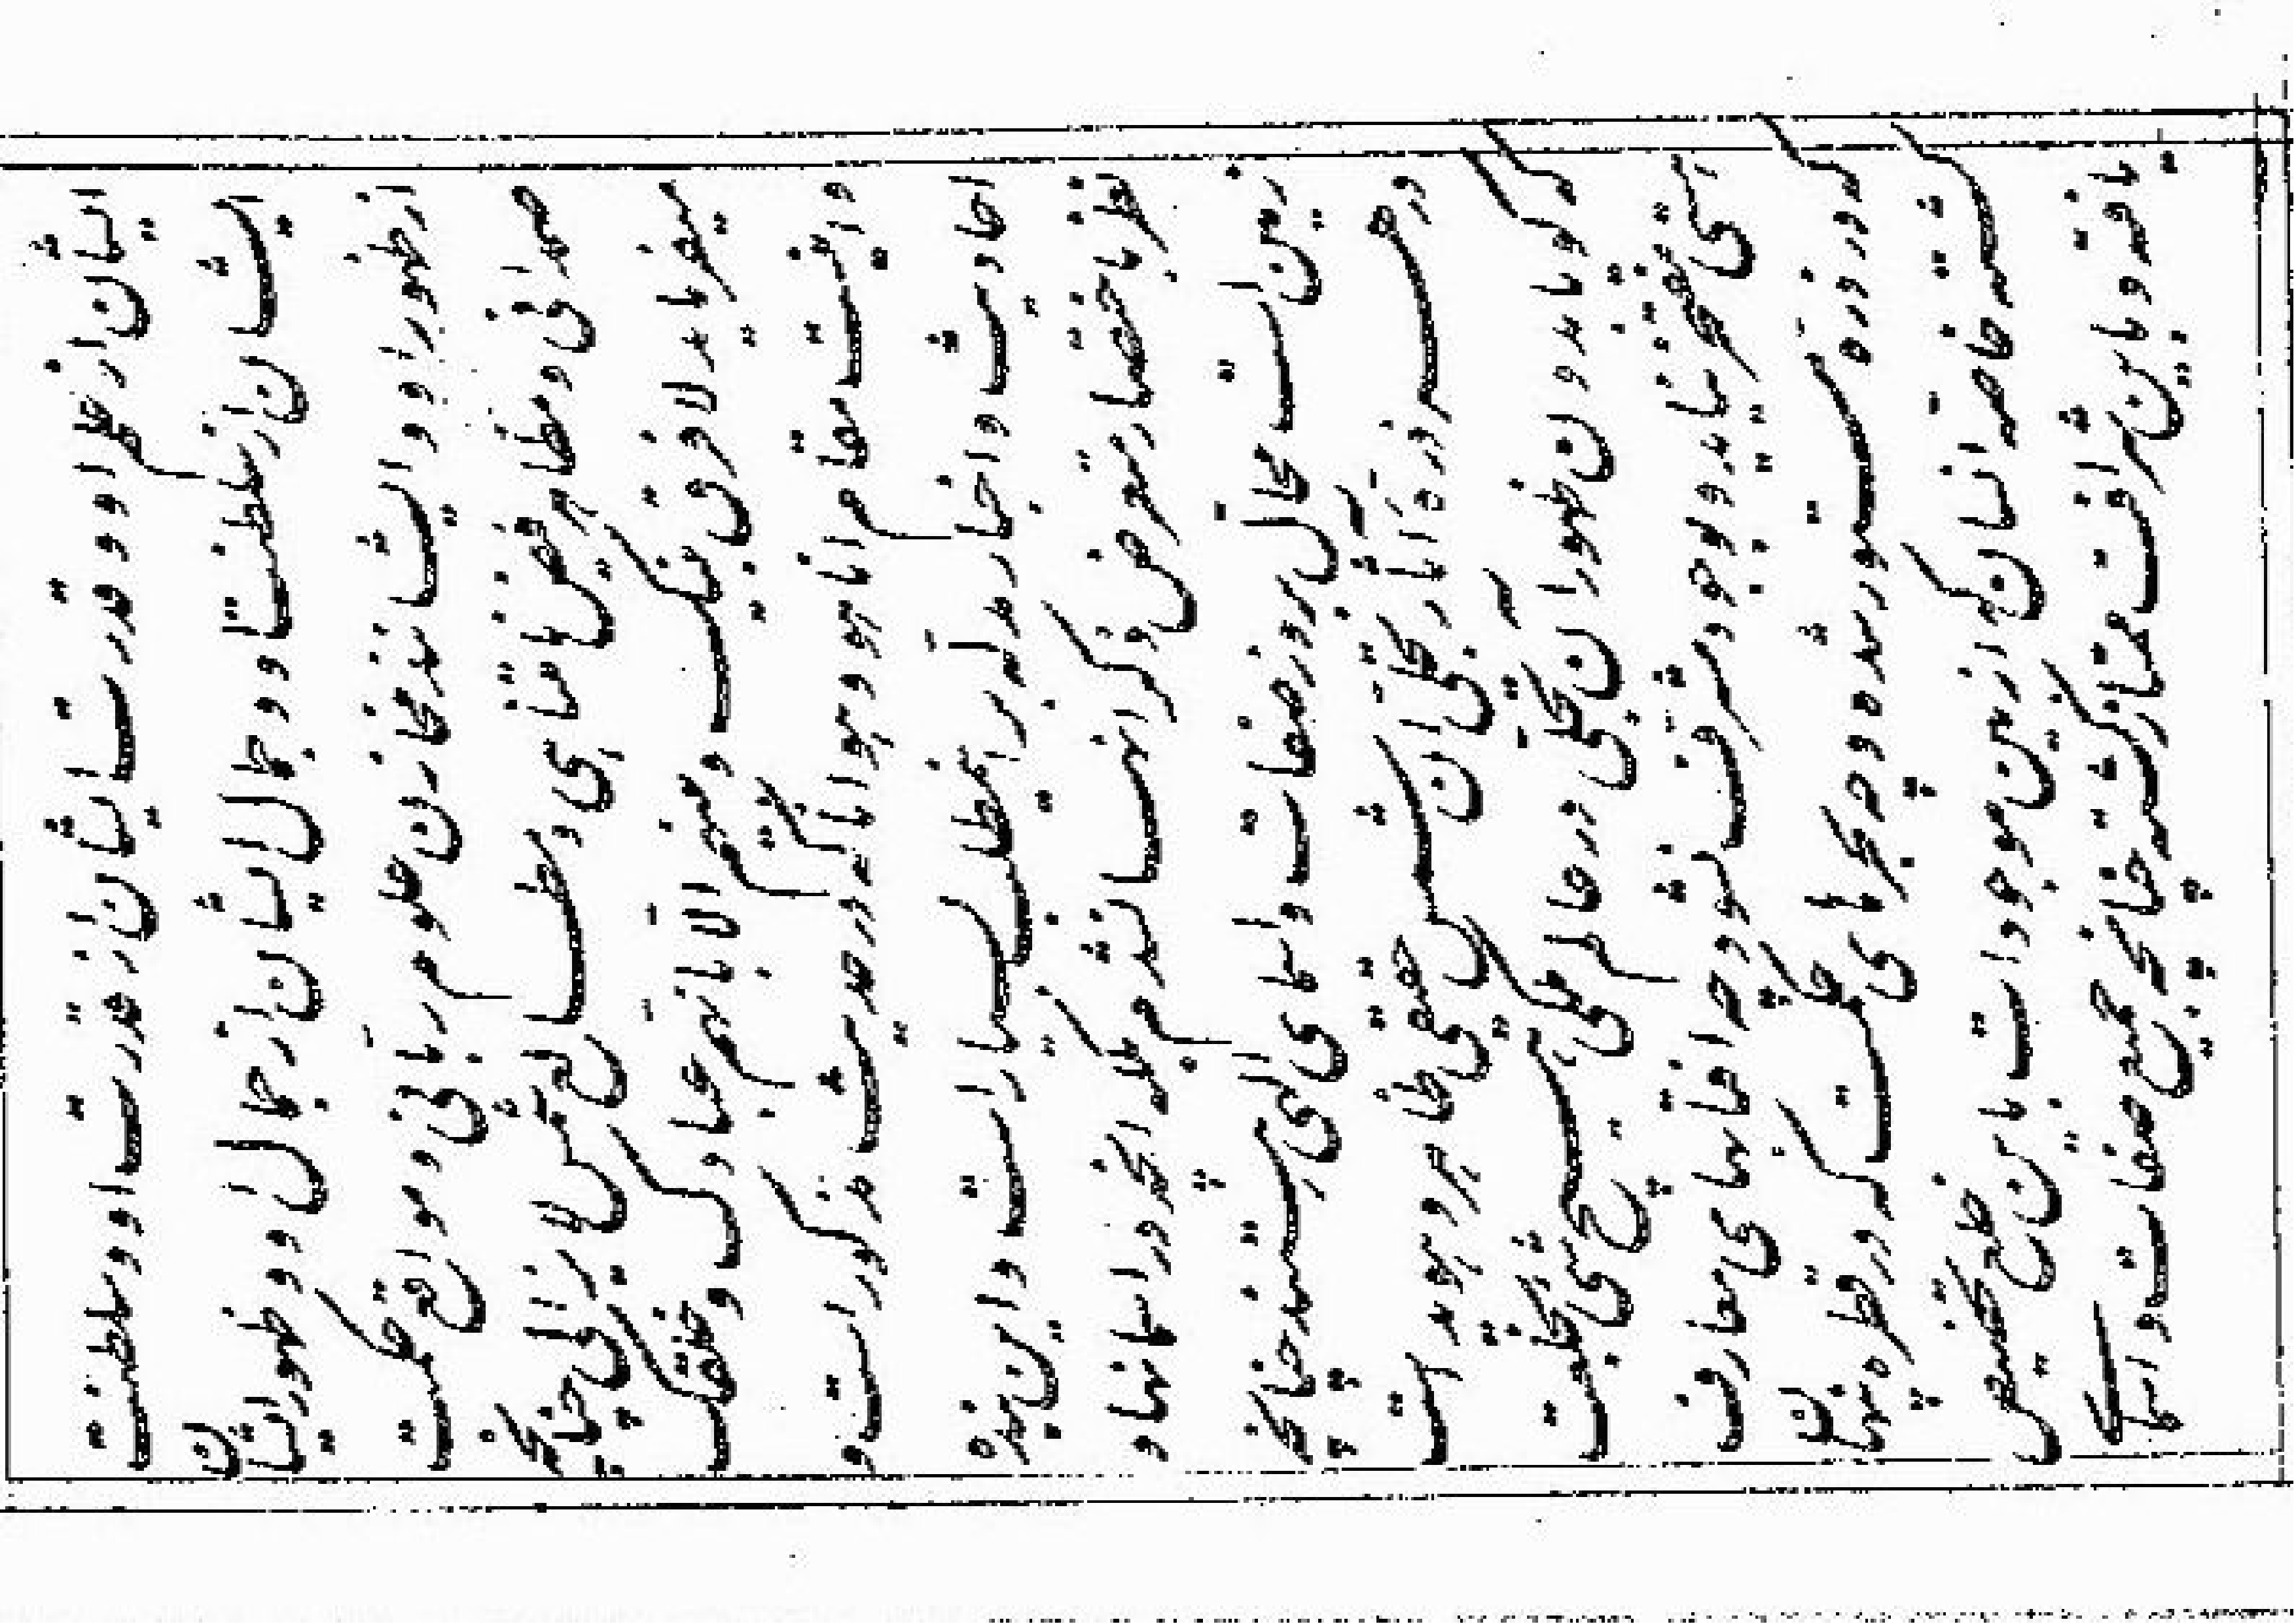 ایشان از علم او و قدرت ایشان از قدرت او و سلطنت
ایشان از سلطنت او و جمال ایشان از جمال او و ظهور ایشان
از ظهور او و ایشانند مخازن علوم ربانی و مواقع حکمت
صمدانی و مظاهر فیض نامتناهی و مطالع شمس لایزالی چنانچه
میفرماید لا فرق بینک و بینهم الا بانهم عبادک و خلقک
و اینست مقام انا هو و هو انا که در حدیث مذکور است و
احادیث و اخبار مدل بر این مطلب بسیار است و این بنده
نظر باختصار متعرض ذکر آنها نشدم بلکه آنچه در اسمانها و
زمین است محال بروز صفات و اسمای الهی هستند چنانچه
در هر ذره آثار تجلی آن شمس حقیقی ظاهر و هویدا است
که گویا بدون ظهور آن تجلی در عالم ملکی هیچ شی بخلعت
هستی مفتخر نیاید و بوجود مشرف نشود چه افتابهای معارف
که در ذره مستور شده و چه بحرهای حکمت که در قطره پنهان
گشته خاصه انسان که از بین موجودات باین خلع تخصیص
یافته و باین شرافت ممتاز گشته چنانچه جمیع صفات و اسمای